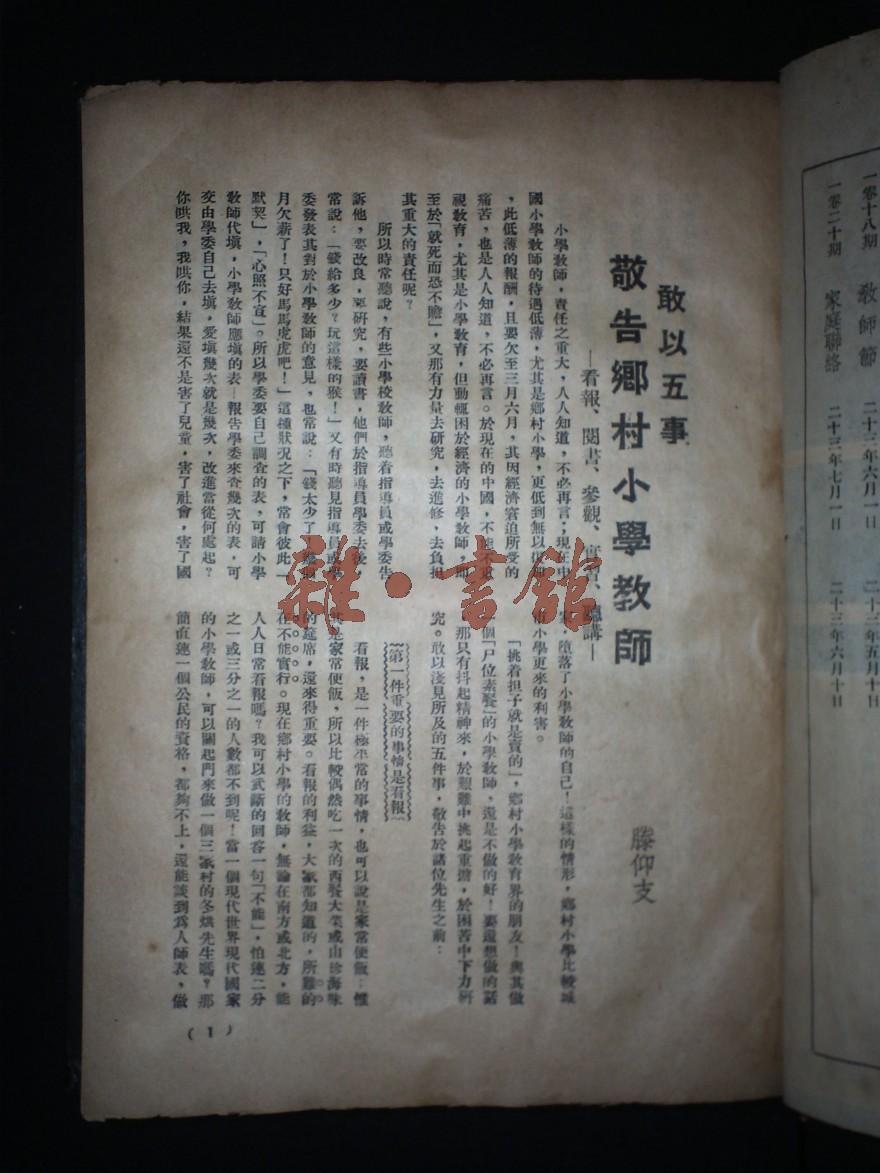 一卷十八期　教師節　二十三年六月一日　二十三年五月十日
一卷二十期　家庭聯絡　二十三年七月一日　二十三年六月十日
敢以五事
敬告鄉村小學教師
—看報、閱書、參觀、實習、聽講—
滕仰支
小學教師，責任之重大，人人知道，不必再言；現在中
國小學教師的待遇低薄，尤其是鄉村小學，更低到無以復加
，此低薄的報酬，且要欠至三月六月，其因經濟窘迫所受的
痛苦，也是人人知道，不必再言。於現在的中國，不能不重
視教育，尤其是小學教育，但動輒困於經濟的小學教師，却
至於「就死而恐不贍」，又那有力量去研究，去進修，去負担
其重大的責任呢？
所以時常聽說，有些小學校教師，聽着指導員或學委告
訴他，要改良，要研究，要讀書，他們於指導員學委去後，
常說：「錢給多少？玩這樣的猴！」又有時聽見指導員或學
委發表其對於小學教師的意見，也常說：「錢太少了！幾個
月欠薪了！只好馬馬虎虎吧！」這種狀況之下，常會彼此「
默契」，「心照不宣」。所以學委要自己調查的表，可請小學
教師代填，小學教師應填的表—報告學委來查幾次的表，可
交由學委自己去填，愛填幾次就是幾次，改進當從何處起？
你哄我，我哄你，結果還不是害了兒童，害了社會，害了國
家，墮落了小學教師的自己！這樣的情形，鄉村小學比較城
市小學更來的利害。
「挑着担子就是賣的」，鄉村小學教育界的朋友！與其做
一個「尸位素餐」的小學教師，還是不做的好！要還想做的話
，那只有抖起精神來，於艱難中挑起重擔，於困苦中下力研
究。敢以淺見所及的五件事，敬告於諸位先生之前：
第一件重要的事情是看報
看報，是一件極平常的事情，也可以說是家常便飯；惟
其是家常便飯，所以比較偶然吃一次的西餐大菜或山珍海味
的筵席，還來得重要。看報的利益，大家都知道的，所難的
在不能實行。現在鄉村小學的教師，無論在南方或北方，能
人人日常看報嗎？我可以武斷的回答一句「不能」，怕連二分
之一或三分之一的人數都不到呢！當一個現代世界現代國家
的小學教師，可以關起門來做一個三家村的冬烘先生嗎？那
簡直連一個公民的資格，都夠不上，還能談到爲人師表，做
（1）
雜·書館